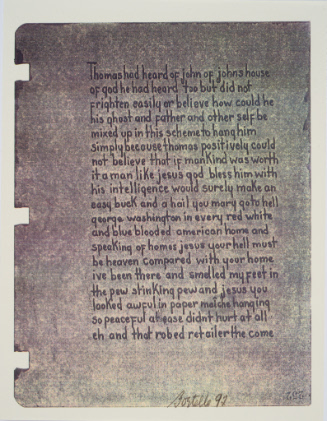 Thomas had heard of john of johns house
of god he had heard too but did not
frighten easily or believe how could he
his ghost and father and other self be
mixed up in this scheme to hang him
simply because thomas positively could
not believe that if mankind was worth
it a man like jesus god bless him with
his intelligence would surely make an
easy buck and a hail you mary go to hell
george washington in every red white
and blue blooded american home and
speaking of homes jesus your hell must
be heaven compared with your home
ive been there and smelled my feet in
the pew stinking pew and jesus you
looked awful in paper mache hanging
so peaceful at ease didnt hurt at all
eh and that robed retailer the come